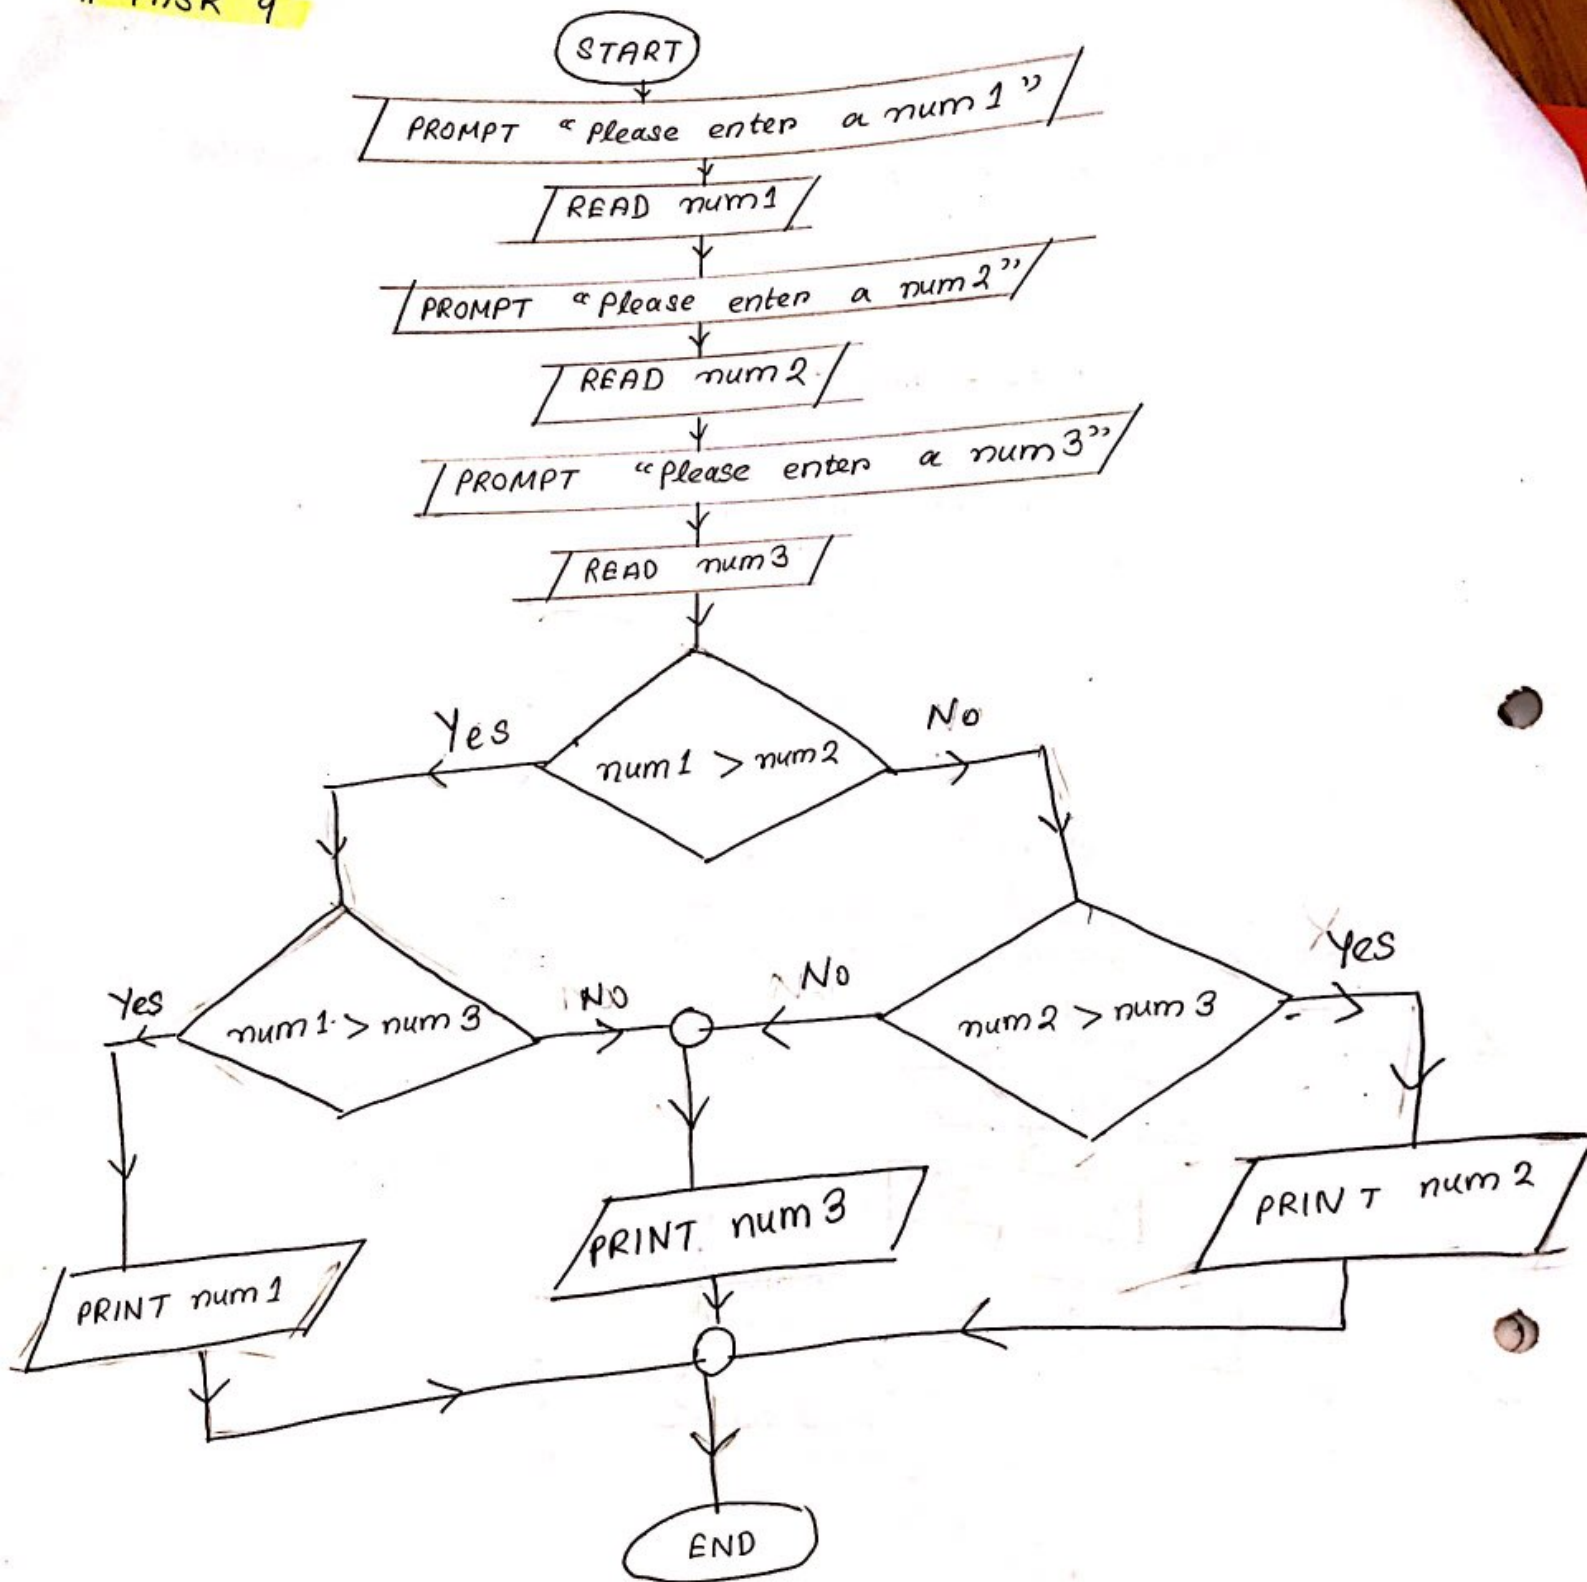 TASK 9
START
PROMPT "Please enter a num 1"
READ num1
PROMPT "Please enter a num 2"
READ num 2
PROMPT "Please enter a num 3"
READ num 3
Yes
No
num 1 > num 2
Yes
num 1 > num 3
No
No
num 2 > num 3
Yes
PRINT num 1
PRINT num 3
PRINT num 2
END